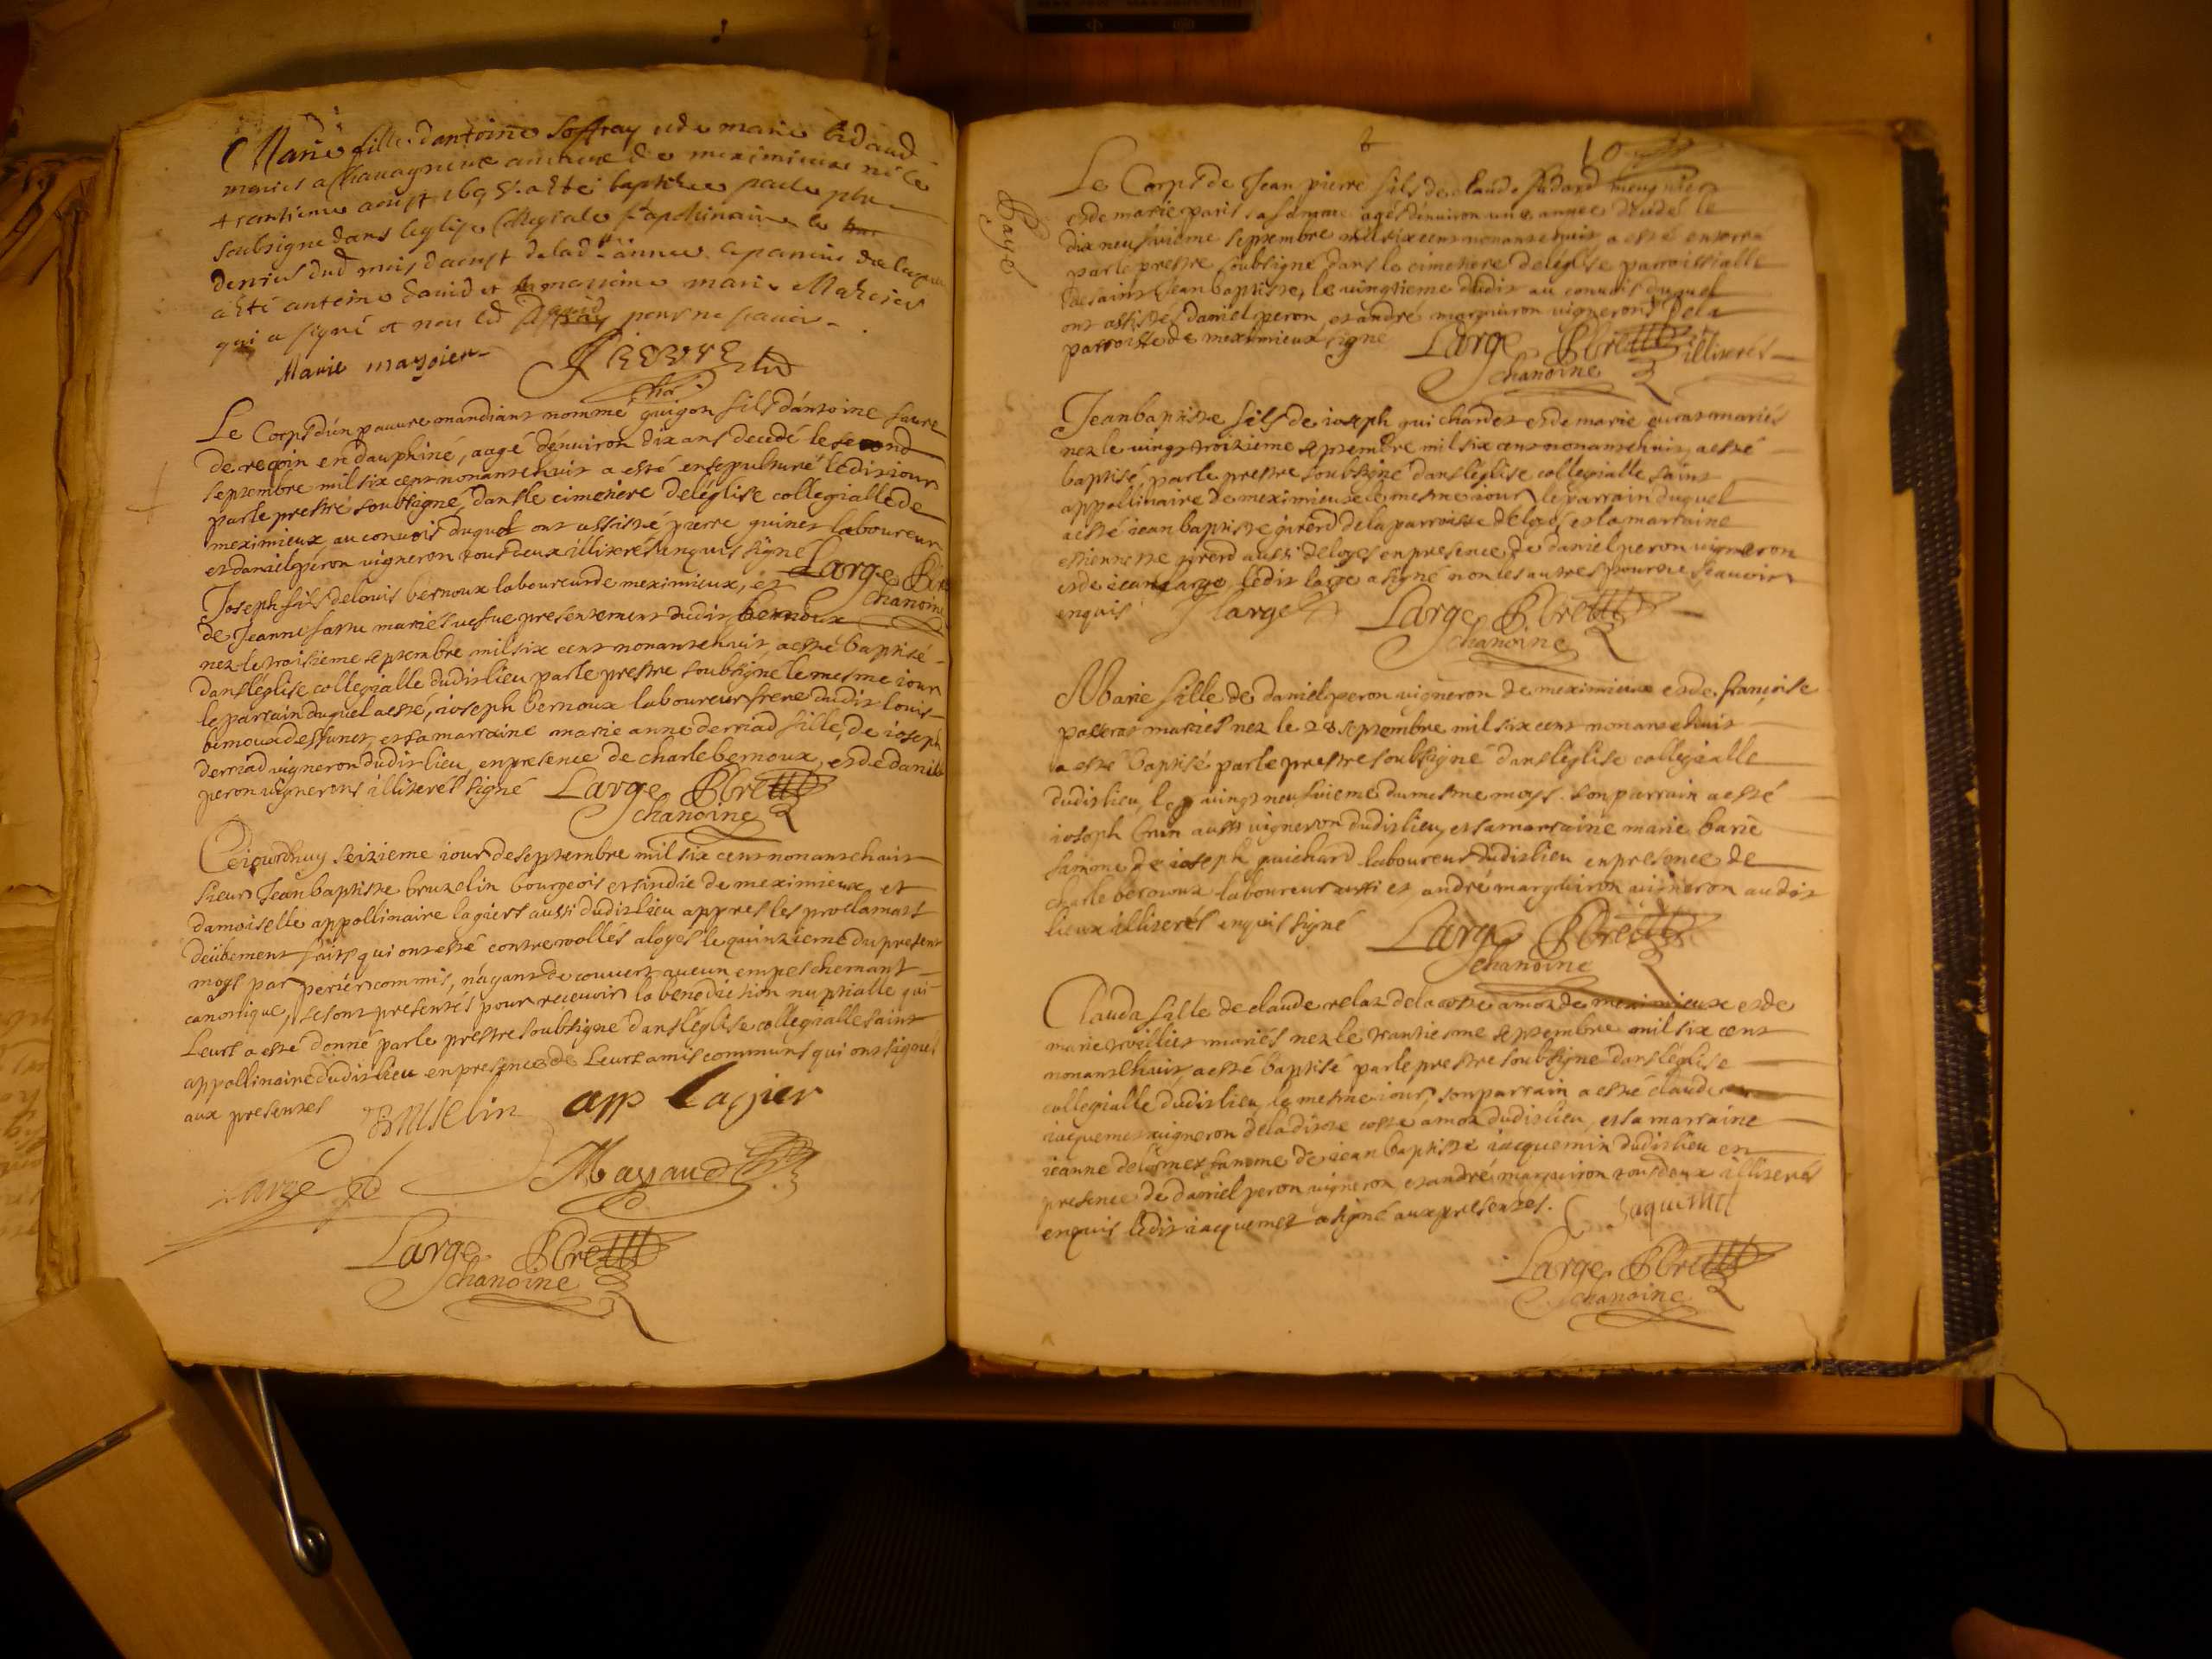 Marie fille dantoine Soffray et de marie bidaud
mariés a Chavagnieux annexe de meximieux née le
trentieme aoust 1698. a été baptisée par le ptre
soubsigné dans leglise Collegiale St apolinaire le
dernier dud mois daoust de lad. année le parrain de laquelle
a été antoine david et la marraine marie Mazoier
qui a signé et non led david pour ne scavoir
Marie mazoier
Le Corps dún pauvre mandiant nommé guigon fils dántoine favre
de recoin en dauphiné, aagé dénuiron dix ans decedé le second
septembre mil six cent nonantehuit a esté ensepulturé ledit iour
par le prestre soubsigné dans le cimetiere deléglise collegialle de
meximieux au convois duquel ont assisté pierre guinet laboureur
et daniel péron vigneron tous deux illiterés enquis signé Large
chanoine
Joseph fils de louis bernoux laboureur de meximieux, et
de Jeanne mariés vefve presentement dudit bernoux
nez le troisieme septembre mil six cent nonantehuit, a esté baptisé
dans léglise collegialle dudit lieu par le prestre soubsigné le mesme iour
le parrain duquel a esté, ioseph bernoux laboureur frere dudit louis
bernoux deffunct, et sa marraine marie anne derriad fille, de ioseph
derriad vigneron dudit lieu, en presence de charle bernoux, et de daniel
peron vignerons illiterés signé Large Pbre
chanoine
Ceiourdhuy seizieme iour de septembre mil six cent nonantehuit
sieur Jean baptiste bruzelin bourgeois et sindic de meximieux, et
damoiselle appollinaire lagiers aussi dudit lieu appres les proclamast
deübement faits qui ont esté contrerollés a loyes le quinzieme du present
moys par perier commis, n'ayant decouvert aucun empeschemant
canonique, se sont presentés pour recevoir la benediction nuptialle qui
Leurs a esté donné par le prestre soubsigné dans léglise collegialle saint
appollinaire dudit lieu en presences de Leurs amis communs qui ont signés
aux presentes Bruselin app Lagier
Large Mayaud
Large Pbre
chanoine
10
Payé
Le Corps de Jean pierre fils de claude meugnier
et de marie paris sa famme agés dénuiron une année decedé le
dix neufvieme septembre mil six cent nonantehuit a esté enterré
par le prestre soubsigné dans le cimetiere de léglise parroissialle
de saint Jean baptiste, le vingtieme dudit au convois duquel
ont assistés daniel peron et andré marguiron vignerons de la
parroisse de meximieux signé Large Pbre illiterés
chanoine
Jean baptiste fils de ioseph guichardet et de marie mariés
nez le vingt troizieme septembre mil six cent nonantehuit, a esté
baptisé, par le prestre soubsigné dans léglise collegialle saint
appollinaire de meximieux le mesme iour, le parrain duquel
a esté iean baptiste girerd de la parroisse de loyes et la marraine
estiennette girerd aussi de loyes en presence de daniel peron vigneron
et de iean large, ledit large a signé non les autres pour ne scavoir
enquis J Large Large Pbre
chanoine
Marie fille de daniel peron vigneron de meximieux et de françoise
passerat mariés nez le 28 septembre mil six cent nonantehuit
a esté baptisé par le prestre soubsigné dans léglise collegialle
dudit lieu, le vingt neufvieme du mesme moys. son parrain a esté
ioseph brun aussi vigneron dudit lieu, et sa marraine marie barie
famme de ioseph guichard laboureur dudit lieu en presence de
charle bernoux laboureur aussi et andré marguiron vigneron audit
lieux illiterés enquis signé Large Pbre
chanoine
Clauda fille de claude relaz de la coste amoz de meximieux et de
marie mariés nez le trantiesme septembre mil six cent
nonantehuit, a esté baptisé par le prestre soubsigné dans léglise
collegialle dudit lieu, le mesme iour, son parrain a esté claude
iacquemet vigneron de laditte coste amoz dudit lieu, et sa marraine
ieanne delormes famme de iean baptiste iacquemin dudit lieu en
presence de daniel peron vigneron et andré marguiron tous deux illiterés
enquis ledit iacquemet a signé aux presentes. C Jaquemet
Large Pbre
chanoine